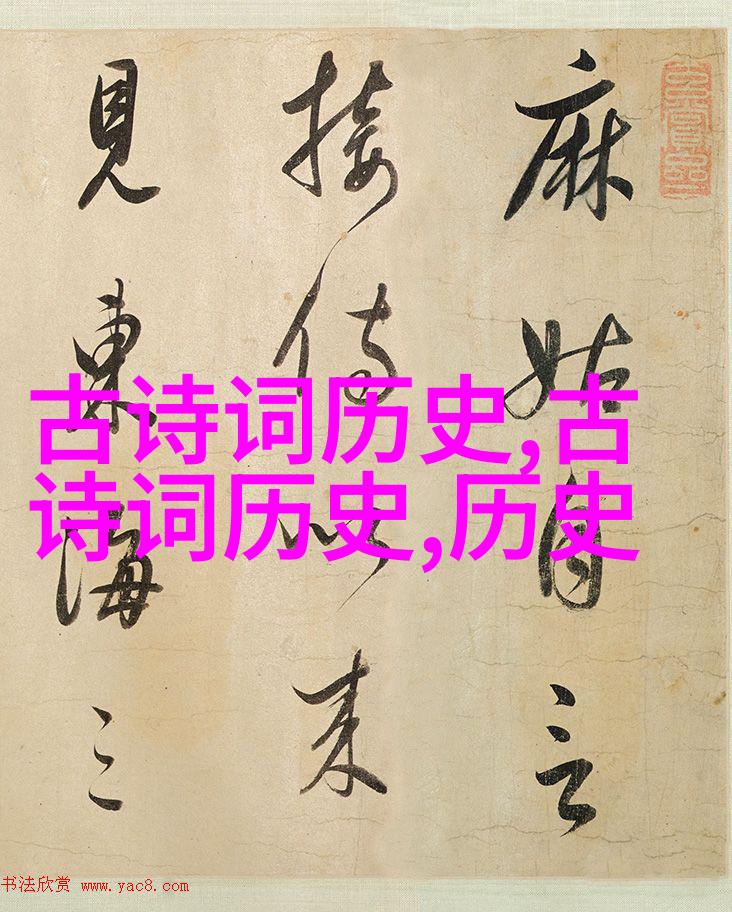 麻姑自言
接侍以来
見東海三
古诗词历史,古
诗词历史,历史
书法欣赏 www.yac8.com